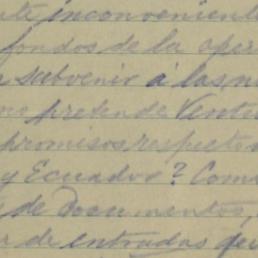 inconveniente
fondos de la
subvenir á las
pretende
promisos respecto
y Ecuador? Com
de Documentos,
de entradas